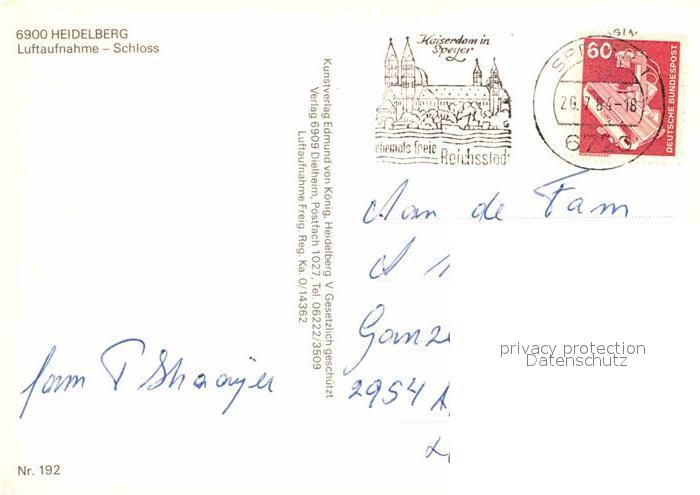 6900 HEIDELBERG
Luftaufnahme – Schloss
Kaiserdom in
Speyer
ehemals freie Reichsstadt
20.7.84-18
6720
60
DEUTSCHE BUNDESPOST
Kunstverlag Edmund von König, Heidelberg V Gesetzlich geschützt
Verlag 6909 Dielheim, Postfach 1027, Tel. 06222/3509
Luftaufnahme Freig. Reg. Ka. 0/14362
Aan de Fam
A
Ganze
2954 A
privacy protection
Datenschutz
fam
Nr. 192